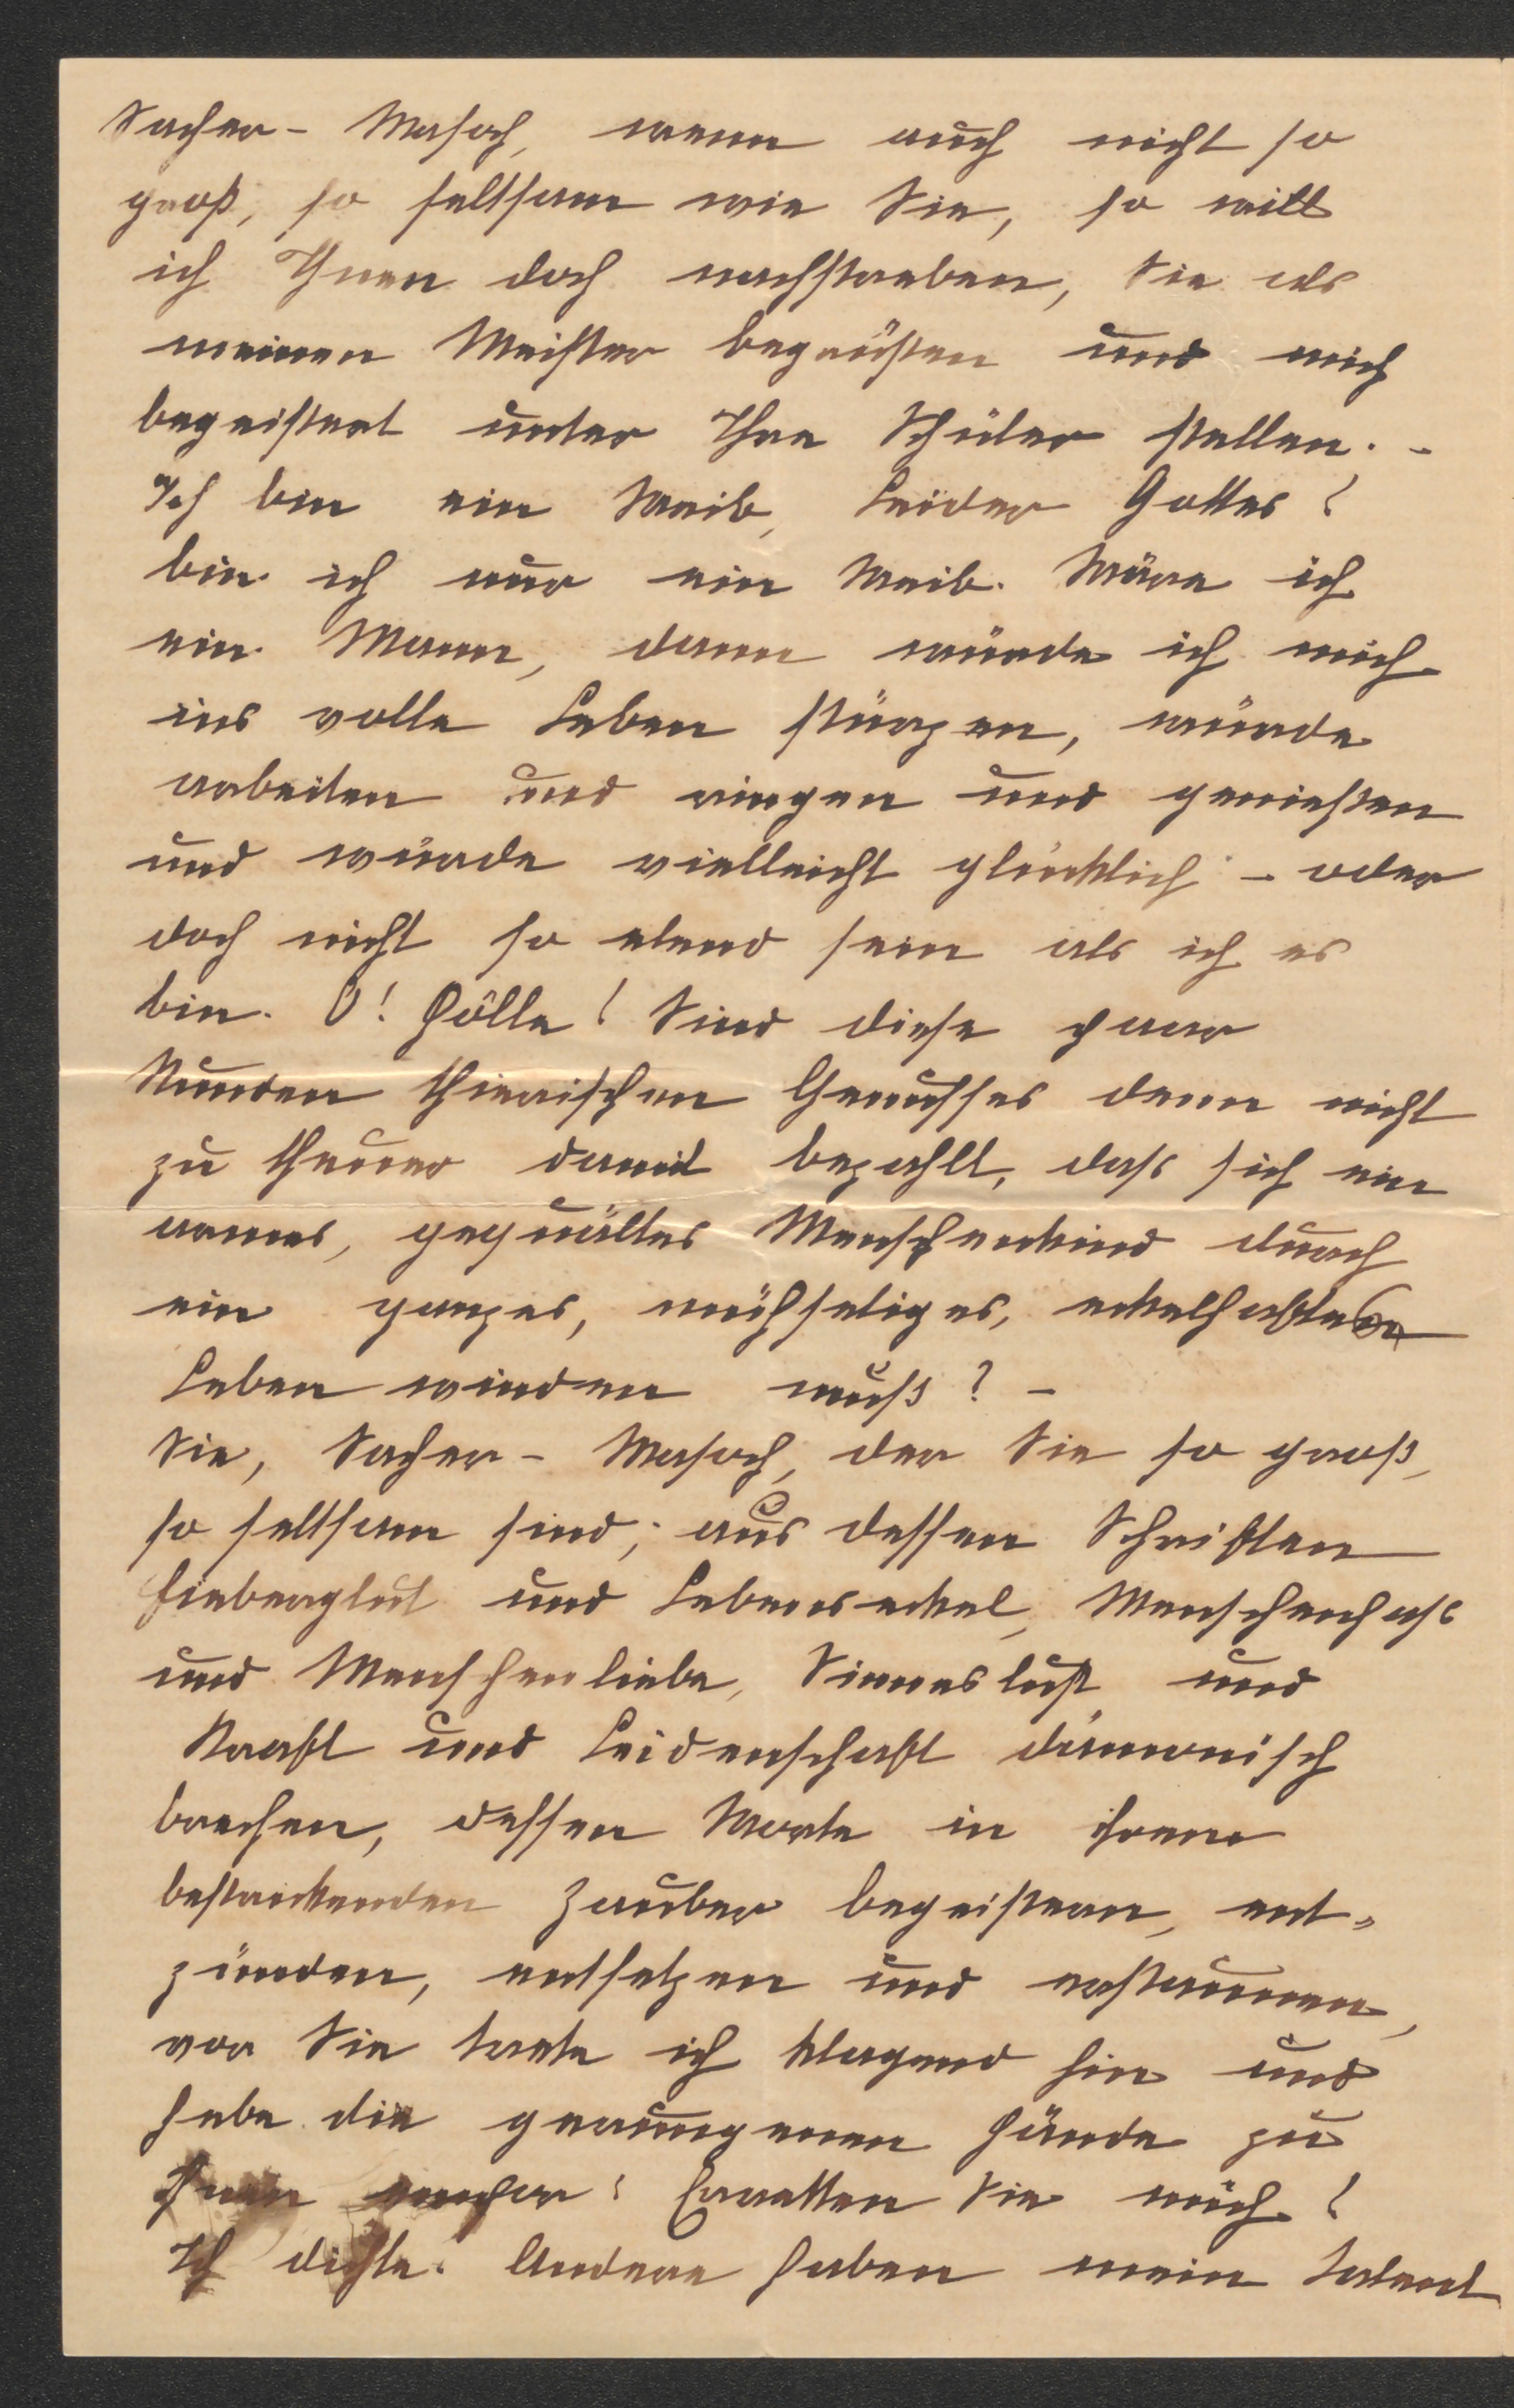 Sacher- Masoch, wenn auch nicht so
groß, so seltsam wie Sie, so will
ich Ihnen doch nachstreben, Sie als
meinen Meister begrüßen und mich
begeistert unter Ihre Schüler stellen. -
Ich bin ein Weib, Leider Gottes!
bin ich nur ein Weib. Wäre ich
ein Mann, dann würde ich mich
ins volle Leben stürzen, würde
arbeiten und ringen und genießen
und würde vielleicht glücklich - oder
doch nicht so elend sein als ich es
bin. O! Hölle! Sind diese paar
Stunden thierischen Genusses denn nicht
zu theuer damit bezahlt, dass sich ein
armes, gequältes Menschenkind durch
ein ganzes, mühseliges, eckelhaftes
Leben winden muß? -
Sie, Sacher- Masoch, der Sie so groß,
so seltsam sind; aus dessen Schriften
Fieberglut und Lebenseckel, Menschenhass
und Menschenliebe, Sinneslust und
Kraft und Leidenschaft dämonisch
brechen, dessen Worte in ihrem
bestrickenden Zauber begeistern, ent-
zünden, entsetzen und erstaunen,
vor Sie trete ich klagend hin und
hebe die gerungenen Hände zu
Ihnen empor: Erretten Sie mich!
Ich dichte. Andere haben mein Talent